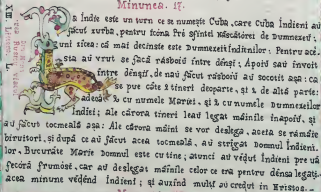 Minunea. 17.
La Indie este un turn ce se numește Cuba, care Cuba Indieni au
făcut zurba, pentru icona Prè sfintei Născătórei de Dumnezeu:
unii zicea: că mai decinste este Dumnezeit indienilor: Pentru ace-
sta au vrut se facă răsboiu între dênși. Apoi sau învoit
între dênșii, de nau făcut răsboiu au socotit așa: ca
se pue câte 2 tineri deoparte, și 2 de altă parte:
adecă 2 cu numele Mariei, și 2 cu numele Dumnezeilor
Indiei; ale cărora tineri lead legat mâinile înapoi, și
au făcut tocmeală așa: Ale cărora mâini se vor deslega, aceia se rămâie
biruitori, și după ce au făcut acea tocmeală, au strigat Domnul Indieni-
lor. Bucurăte Marie Domnul este cu tine; atunci au vědut Indieni pre uă
fecióră frumósă, car au deslegat mâinile celor ce era pentru dênsa legați,
acea minune vědênd Indieni; și auxind mulți au credut în Hristos.